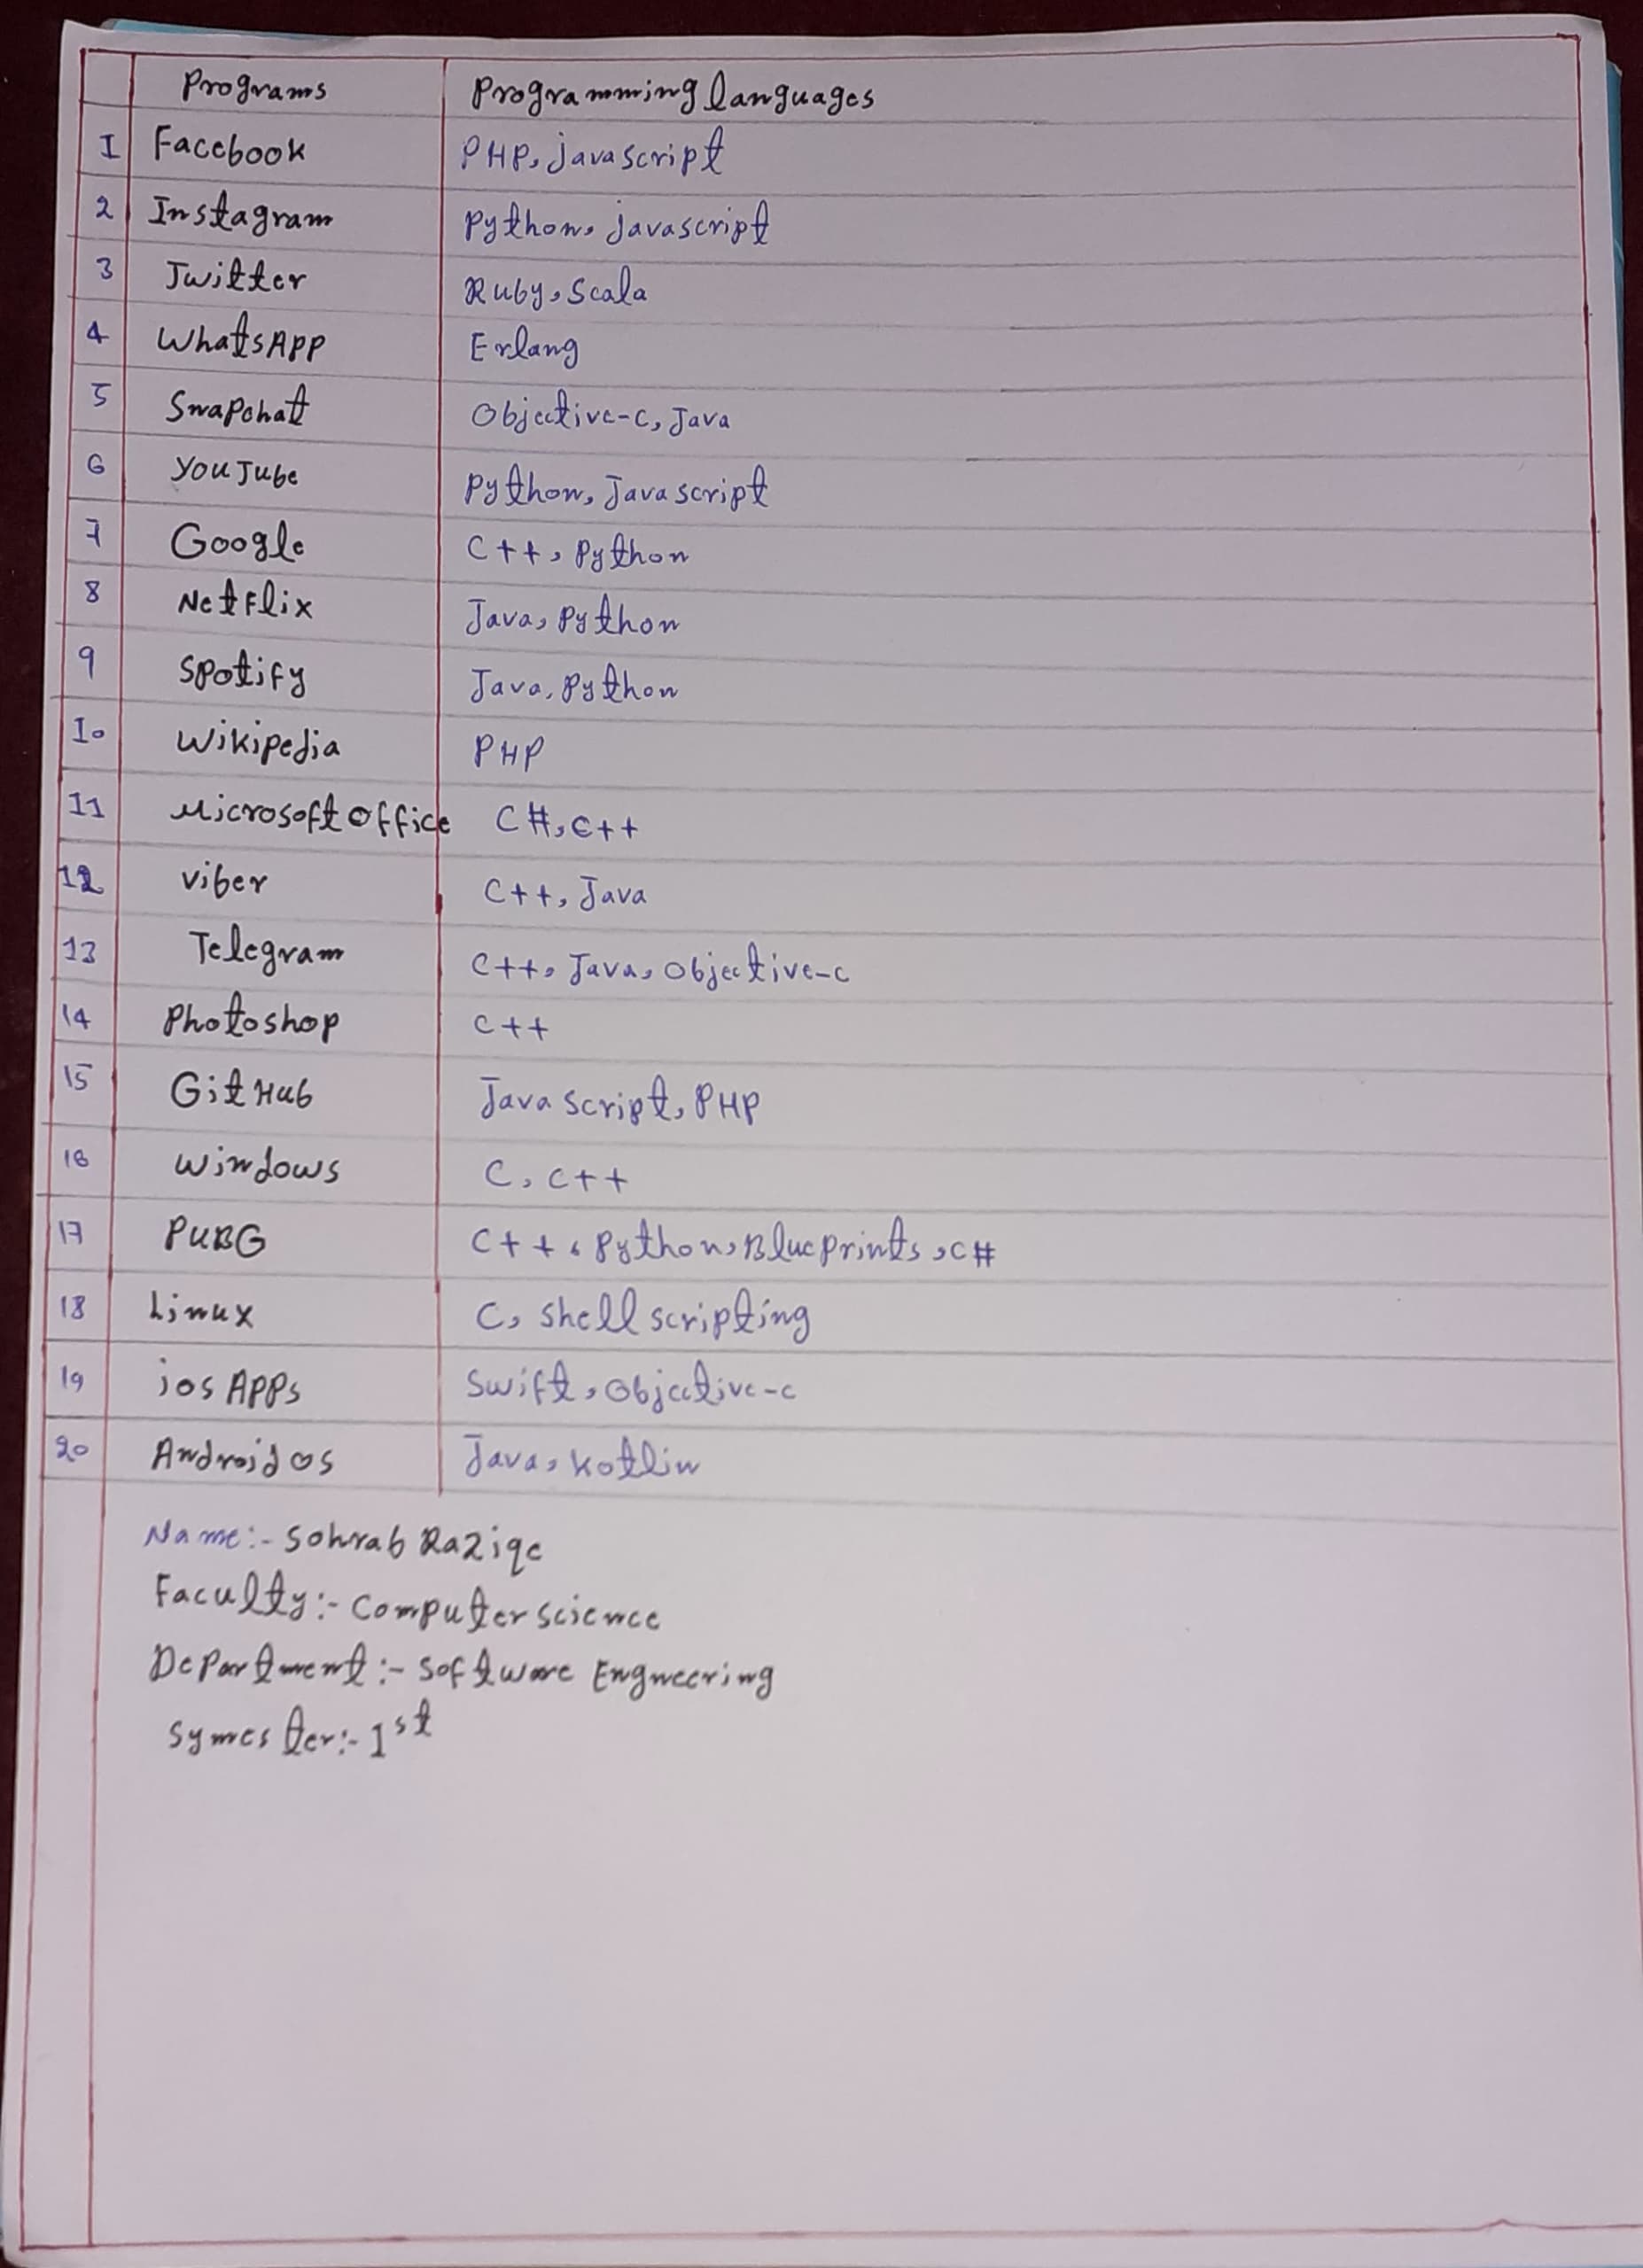 Programs Programming languages
1 Facebook PHP, javascript
2 Instagram Python, javascript
3 Twitter Ruby, Scala
4 WhatsApp Erlang
5 Snapchat Objective-C, Java
6 YouTube Python, Javascript
7 Google C++, Python
8 Netflix Java, Python
9 Spotify Java, Python
10 Wikipedia PHP
11 Microsoft office C#, C++
12 viber C++, Java
13 Telegram C++, Java, Objective-c
14 Photoshop C++
15 GitHub Javascript, PHP
16 Windows C, C++
17 PUBG C++, Python, Blueprints, C#
18 Linux C, shell scripting
19 ios Apps Swift, Objective-c
20 Android os Java, Kotlin
Name:- Sohrab Raziqe
Faculty:- Computer science
Department:- Software Engneering
Symester:- 1st